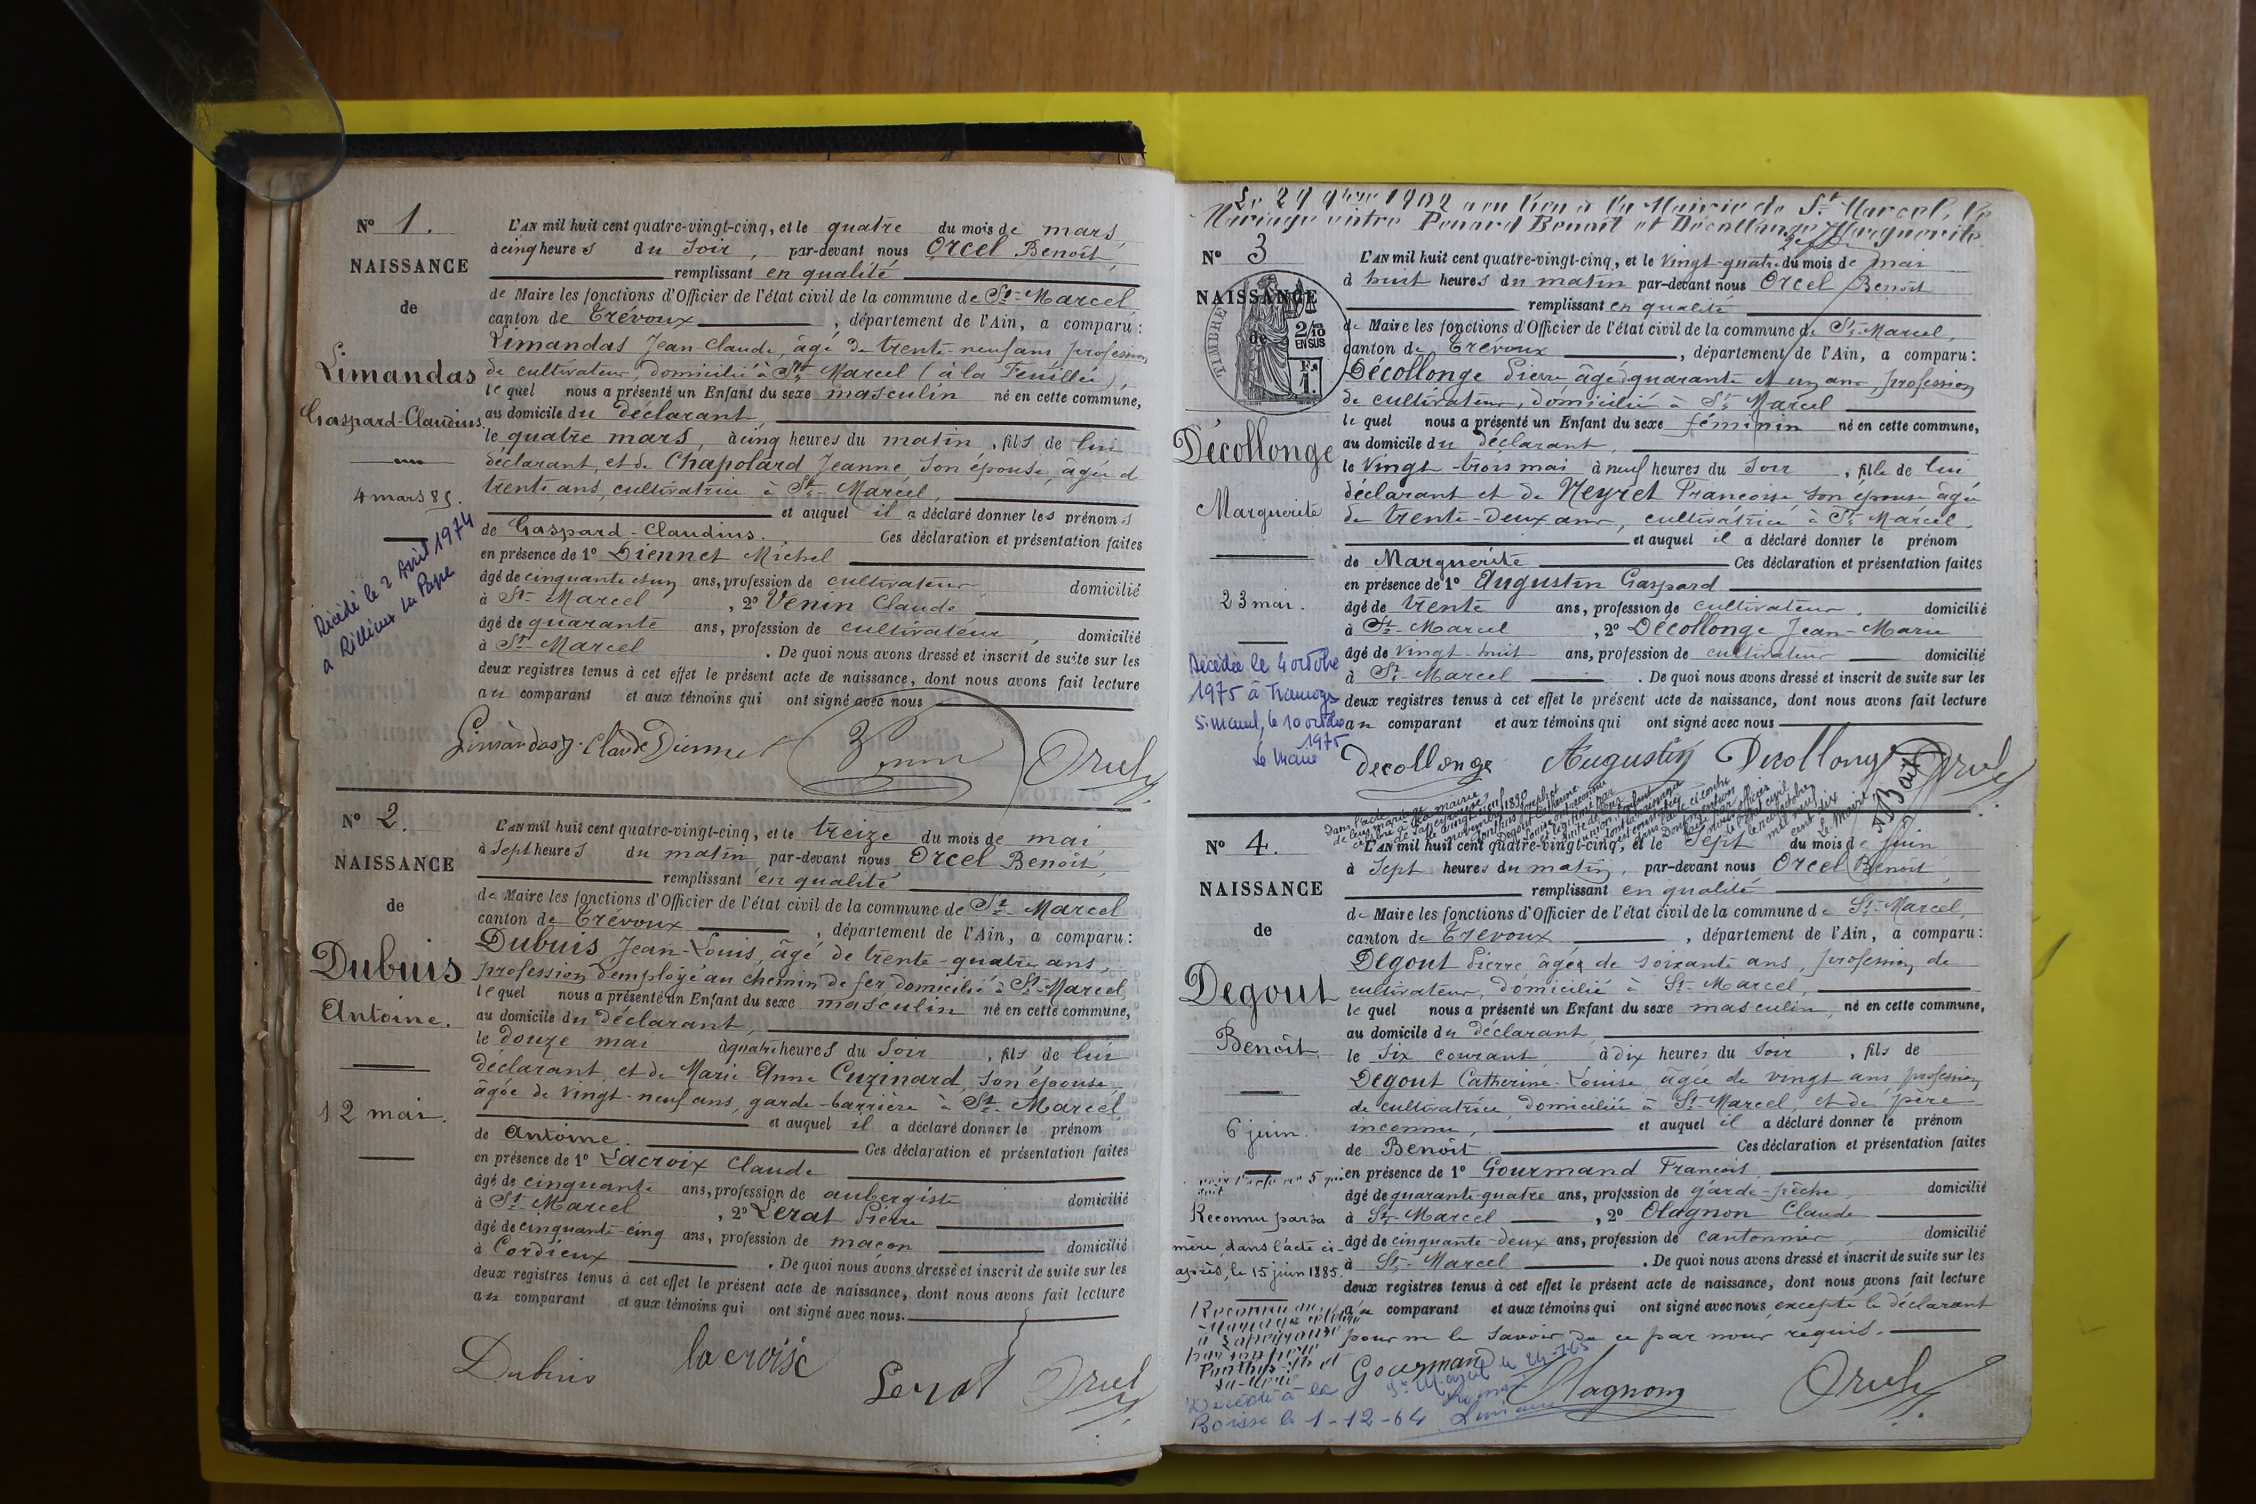 N° 1.
NAISSANCE
de
Limandas
Gaspard-Claudius.
4 mars 85.
Décédé le 2 Avril 1974
a Rillieux La Pape
L'AN mil huit cent quatre-vingt-cinq, et le quatre du mois de mars,
à cinq heures du Soir, par-devant nous Orcel Benoît,
remplissant en qualité
de Maire les fonctions d'Officier de l'état civil de la commune de St-Marcel
canton de Trévoux, département de l'Ain, a comparu:
Limandas Jean Claude, âgé de trente-neuf ans, profession
de cultivateur, domicilié à St-Marcel (à la Feuillée),
lequel nous a présenté un Enfant du sexe masculin né en cette commune,
au domicile du déclarant
le quatre mars, à cinq heures du matin, fils de lui
déclarant, et de Chapolard Jeanne son épouse, âgée d
trente ans, cultivatrice à St-Marcel,
et auquel il a déclaré donner les prénoms
de Gaspard-Claudius. Ces déclaration et présentation faites
en présence de 1° Diennet Michel
âgé de cinquante et un ans, profession de cultivateur, domicilié
à St-Marcel, 2° Venin Claude
âgé de quarante ans, profession de cultivateur, domicilié
à St-Marcel. De quoi nous avons dressé et inscrit de suite sur les
deux registres tenus à cet effet le présent acte de naissance, dont nous avons fait lecture
au comparant et aux témoins qui ont signé avec nous
Limandas J. Claude Diennet Orcel
N° 2.
NAISSANCE
de
Dubuis
Antoine.
12 mai.
L'AN mil huit cent quatre-vingt-cinq, et le treize du mois de mai
à Sept heures du matin, par-devant nous Orcel Benoît,
remplissant en qualité
de Maire les fonctions d'Officier de l'état civil de la commune de St-Marcel
canton de Trévoux, département de l'Ain, a comparu:
Dubuis Jean-Louis, âgé de trente-quatre ans,
profession d'employé au chemin de fer domicilié à St-Marcel,
lequel nous a présenté un Enfant du sexe masculin né en cette commune,
au domicile du déclarant,
le douze mai à quatre heures du Soir, fils de lui
déclarant, et de Marie-Anne Cuzinard, son épouse
âgée de vingt-neuf ans, garde-barrière à St-Marcel,
et auquel il a déclaré donner le prénom
de Antoine. Ces déclaration et présentation faites
en présence de 1° Lacroix Claude
âgé de cinquante ans, profession de aubergiste domicilié
à St-Marcel, 2° Lerat Pierre
âgé de cinquante-cinq ans, profession de maçon domicilié
à Cordieux. De quoi nous avons dressé et inscrit de suite sur les
deux registres tenus à cet effet le présent acte de naissance, dont nous avons fait lecture
au comparant et aux témoins qui ont signé avec nous.
Dubuis lacroix Lerat Orcel
1902 a eu lieu à la Mairie de St Marcel, le
Mariage entre Penard Benoît et Décollonge Marguerite
N° 3
NAISSANCE
de
TIMBRE
2/10
EN SUS
1 F.
Décollonge
Marguerite
23 mai.
Décédée le 4 octobre
1975 à Tramoyes
St Marcel, le 10 octobre
1975
Le Maire
L'AN mil huit cent quatre-vingt-cinq, et le vingt-quatre du mois de mai
à huit heures du matin par-devant nous Orcel Benoît
remplissant en qualité
de Maire les fonctions d'Officier de l'état civil de la commune de St-Marcel,
canton de Trévoux, département de l'Ain, a comparu:
Décollonge Pierre, âgé quarante et un ans, profession
de cultivateur, domicilié à St-Marcel
lequel nous a présenté un Enfant du sexe féminin né en cette commune,
au domicile du déclarant,
le Vingt-trois mai à neuf heures du Soir, fille de lui
déclarant et de Neyret Françoise son épouse âgée
de trente-deux ans, cultivatrice à St-Marcel.
et auquel il a déclaré donner le prénom
de Marguerite Ces déclaration et présentation faites
en présence de 1° Augustin Gaspard
âgé de trente ans, profession de cultivateur, domicilié
à St-Marcel, 2° Décollonge Jean-Marie
âgé de vingt-huit ans, profession de cultivateur domicilié
à St-Marcel. De quoi nous avons dressé et inscrit de suite sur les
deux registres tenus à cet effet le présent acte de naissance, dont nous avons fait lecture
au comparant et aux témoins qui ont signé avec nous
decollonge Augustin Decollonge Orcel
N° 4.
NAISSANCE
de
Degout
Benoît.
6 juin.
voir l'acte no 5 qui
suit
Reconnu par sa
mère, dans l'acte ci-
après, le 15 juin 1885.
Décédé à la
Boisse le 1-12-64
L'AN mil huit cent quatre-vingt-cinq, et le Sept du mois de juin
à Sept heures du matin, par-devant nous Orcel Benoît,
remplissant en qualité
de Maire les fonctions d'Officier de l'état civil de la commune de St-Marcel,
canton de Trévoux, département de l'Ain, a comparu:
Degout Pierre, âgé de soixante ans, profession de
cultivateur, domicilié à St-Marcel,
lequel nous a présenté un Enfant du sexe masculin, né en cette commune,
au domicile du déclarant
le six courant à dix heures du Soir, fils de
Degout Catherine-Louise, âgée de vingt ans profession
de cultivatrice, domiciliée à St-Marcel, et de père
inconnu, et auquel il a déclaré donner le prénom
de Benoît Ces déclaration et présentation faites
en présence de 1° Gourmand François
âgé de quarante-quatre ans, profession de garde-pêche, domicilié
à St-Marcel, 2° Olagnon Claude
âgé de cinquante-deux ans, profession de cantonnier, domicilié
à St-Marcel. De quoi nous avons dressé et inscrit de suite sur les
deux registres tenus à cet effet le présent acte de naissance, dont nous avons fait lecture
au comparant et aux témoins qui ont signé avec nous, excepté le déclarant
pour ne le savoir de ce par nous requis.
Gourmand Olagnon Orcel